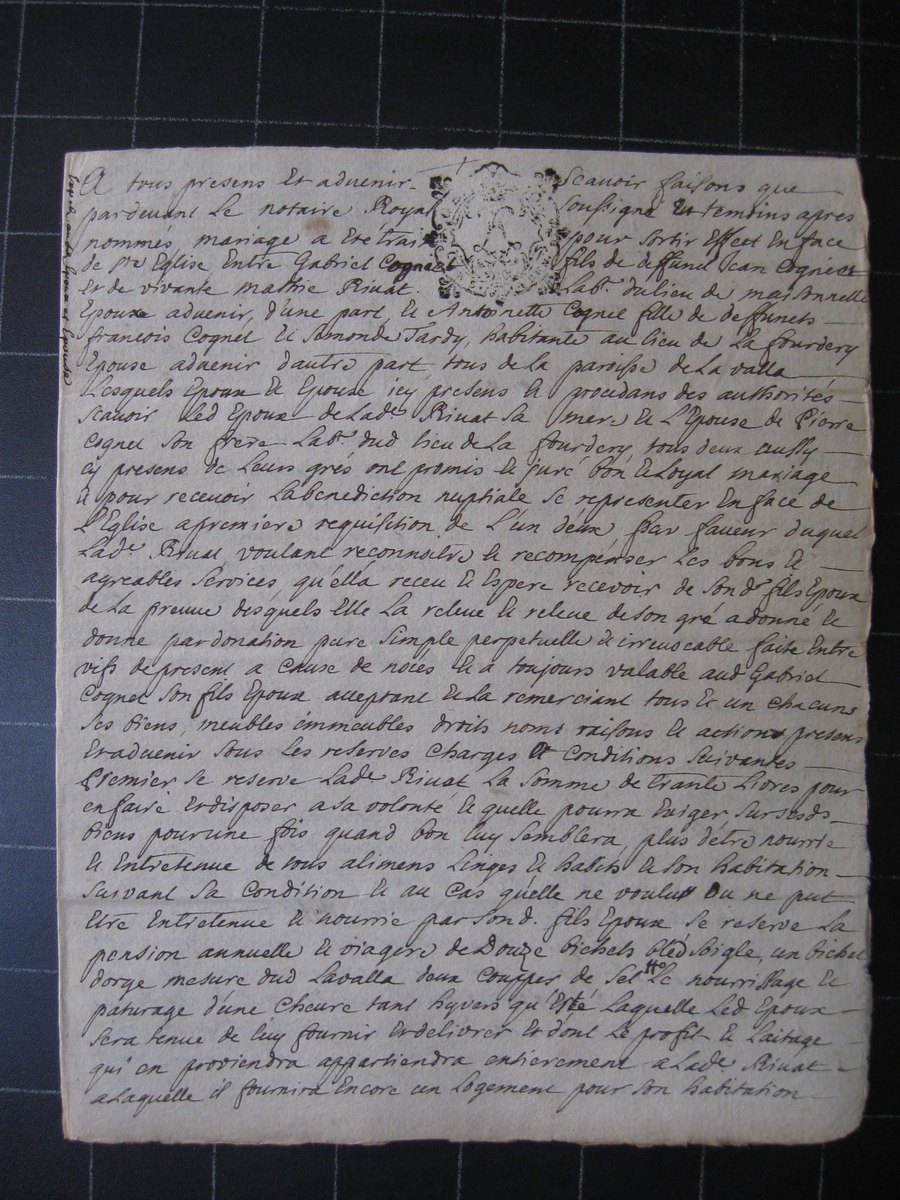 A tous presens Et advenir scavoir faisons que
pardevant Le notaire Royal soussigné Et temoins apres
nommés, mariage a Ete trait pour sortir Effect En face
de Ste Eglise Entre Gabriel Cognet fils de deffunct Jean Cognet
Et de vivante mathie Rivat Labr du lieu de maisonnette
Epoux advenir, d'une part, Et Antoinette Cognet fille de deffuncts
francois Cognet Et Semonde Tardy, habitante au lieu de La fourdery
Epouse advenir d'autre part, tous de la paroisse de La valla
Lesquels Epoux Et Epouse icy presens Et procedans des authorités
scavoir Led Epoux de Lade Rivat sa mere Et L'Epouse de Pierre
Cognet son frere Labr dud lieu de La fourdery, tous deux aussy
cy presens De Leurs grés ont promis Et juré bon Et Loyal mariage
Et pour recevoir La benediction nuptiale se representer En face de
L'Eglise a premiere requisition de L'un d'eux, En faveur duquel
Lade Rivat, voulant reconnaitre Et recompenser Les bons Et
agreables services qu'ella receu Et Espere recevoir de sond fils Epoux
de La preuve desquels Elle La releve Et releve de son gré a donné Et
donne par donation pure simple perpetuelle Et irrevocable faite Entre
vifs de present a cause de noces Et a toujours valable aud Gabriel
Cognet son fils Epoux acceptant Et La remerciant tous Et un chacuns
ses biens, meubles immeubles droits noms raisons Et actions presens
Et advenir sous Les reserves charges Et conditions suivantes
Premier se reserve Lade Rivat La somme de trante Livres pour
en faire Et disposer a sa volonté Et quelle pourra Exiger sur sesds
biens pour une fois quand bon luy semblera, plus d'être nourrie
Et Entretenue de tous alimens Linges Et habits Et son habitation
suivant sa condition Et au cas quelle ne voulut Ou ne put
Etre Entretenue Et nourrie par sond. fils Epoux se reserve La
pension annuelle Et viagere de Douze bichets bled seigle, un bichet
dorge mesure dud Lavalla deux Couppes de sel Le nourrissage Et
paturage d'une chevre tant hyvers qu'Esté Laquelle Led Epoux
sera tenue de luy fournir Et delivrer Et dont Le profit Et Laitage
qui en proviendra appartiendra entierement a Lade Rivat
a Laquelle il fournira Encore un Logement pour son habitation